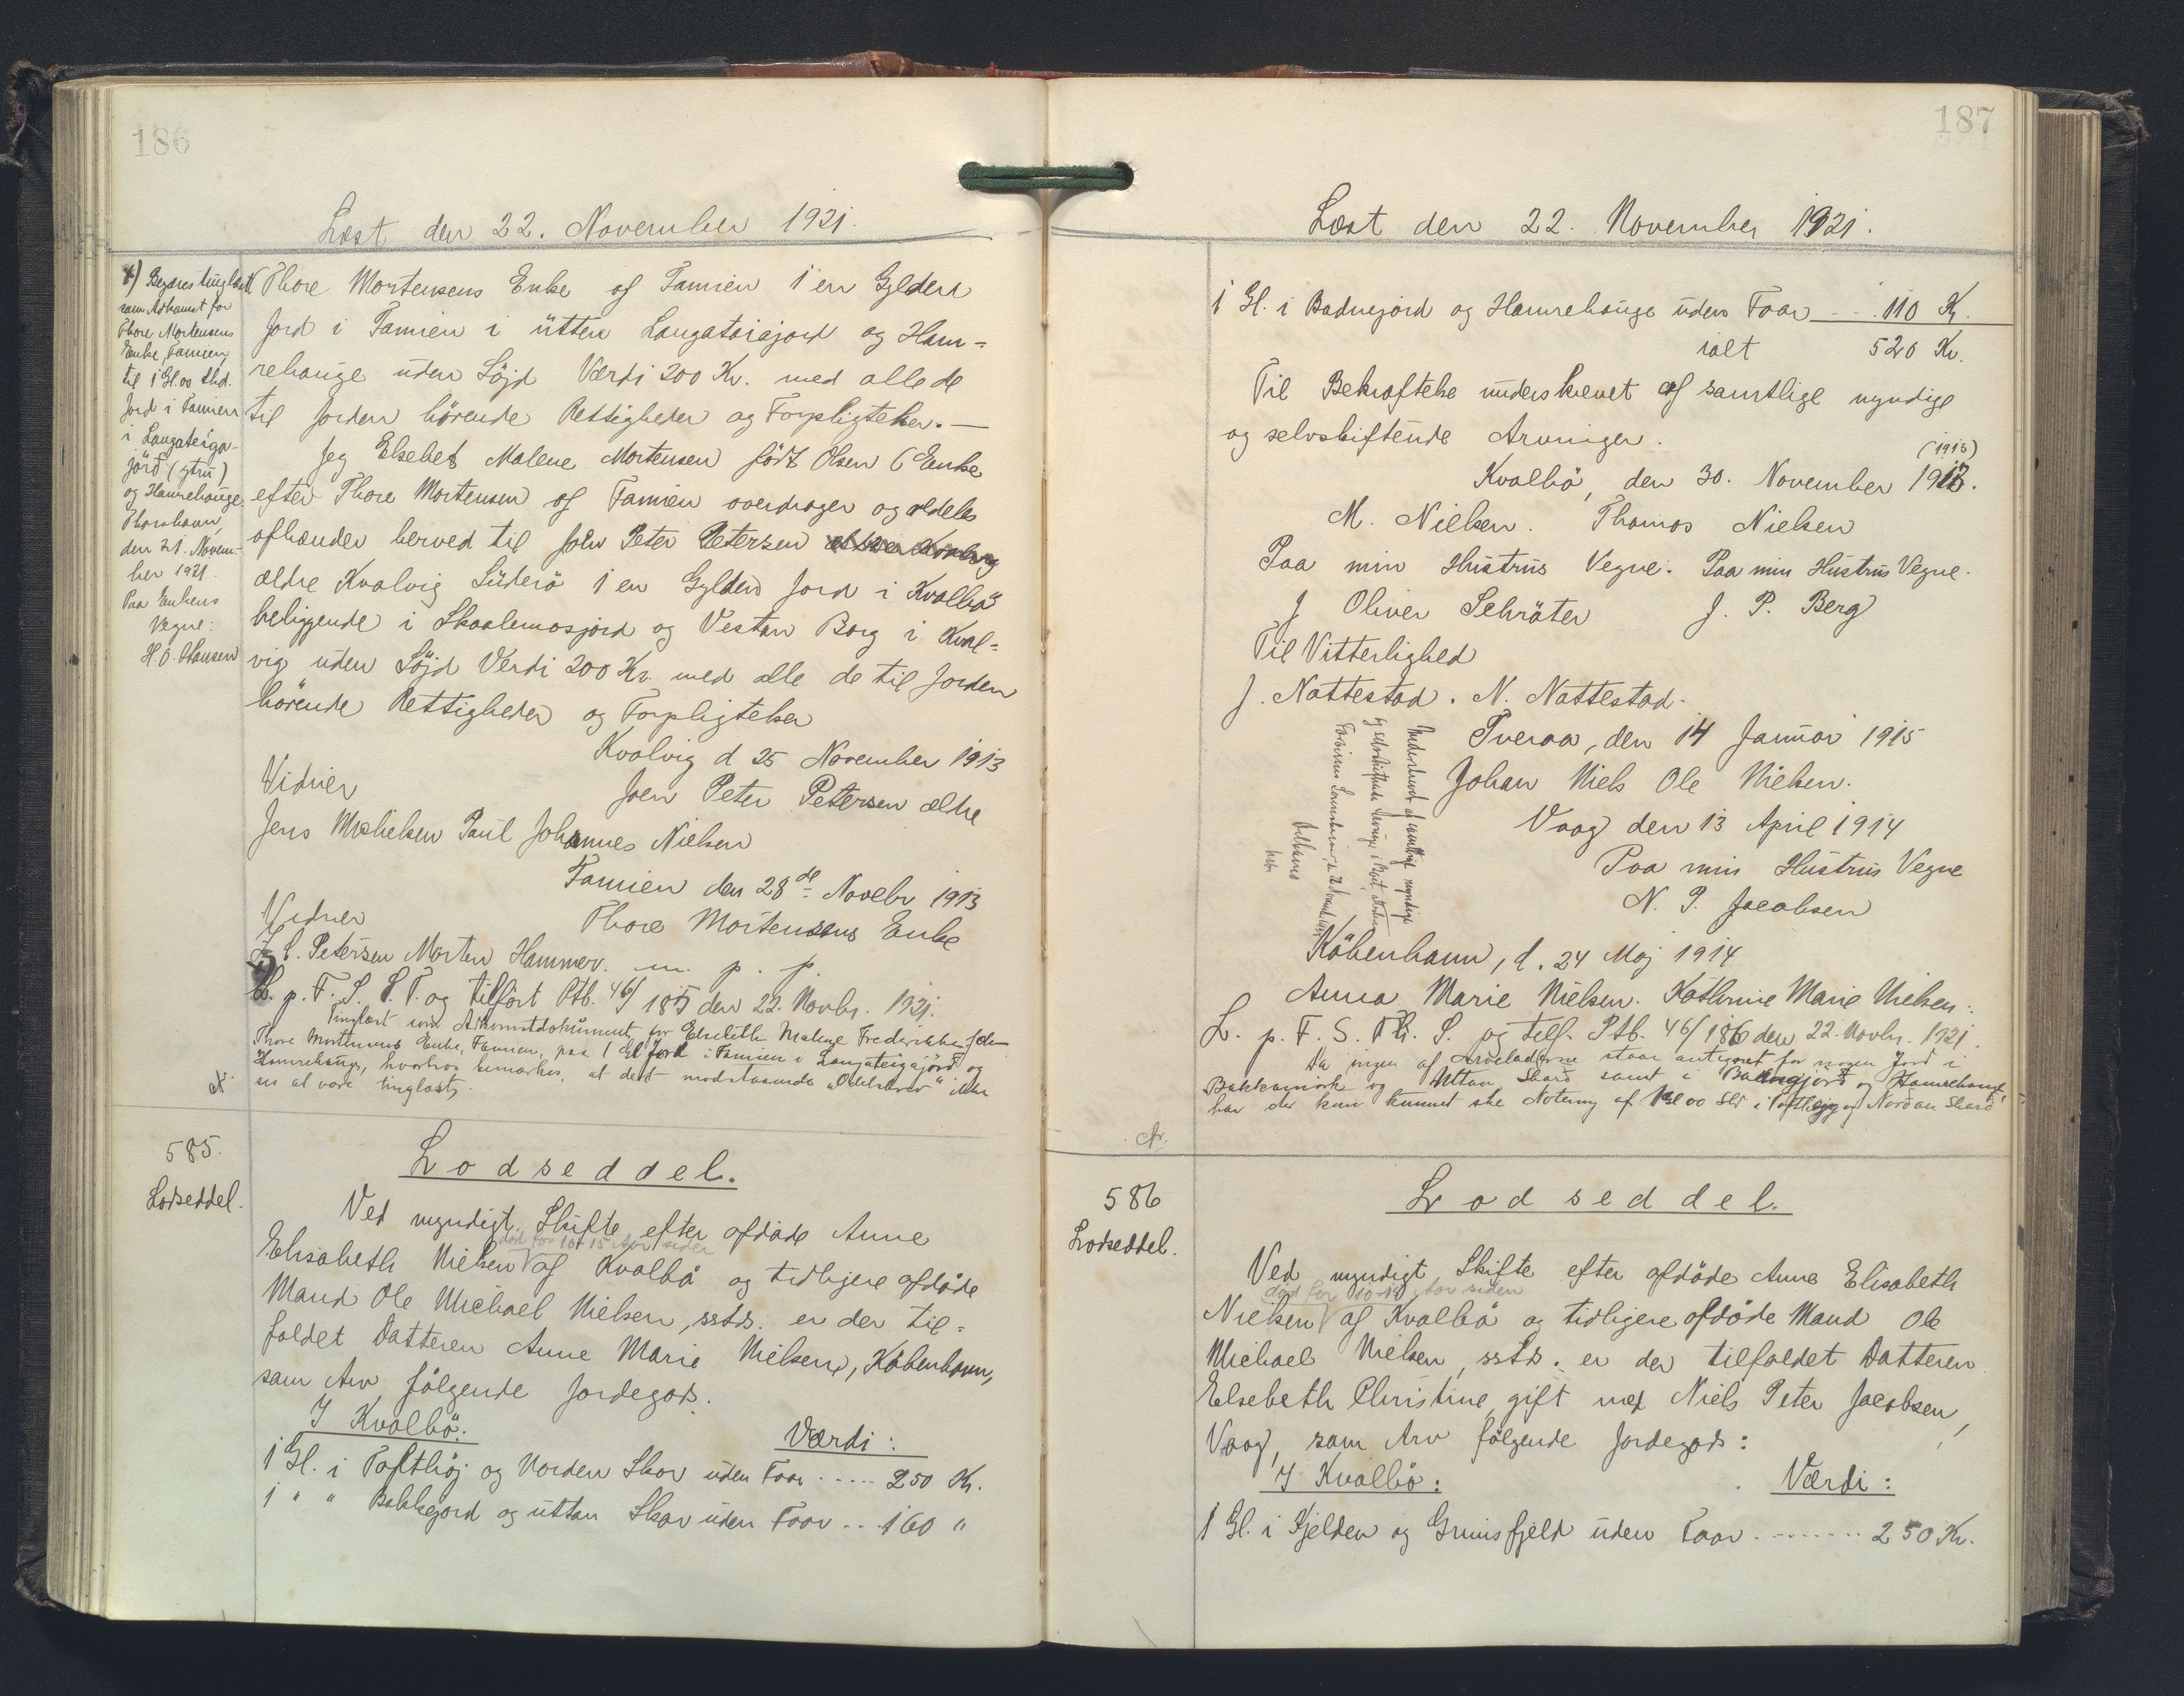 186
Læst den 22. November 1921.
x) Begæres tinglæst
som Adkomst for
Thore Mortensens
Enke, Famien,
til 1 Gl. 00 Skd.
Jord i Famien
i Langateiga-
jörð (ytru)
og Hamrehauge.
Thorshavn,
den 21. Novem-
ber 1921.
Paa Enkens
Vegne:
H. O. Hansen
Thore Mortensens Enke af Famien 1 en Gylden
Jord i Famien i üttra Langataiajord og Ham=
rehauge uden Löjd Værdi 200 Kr. med alle de
til Jorden hörende Rettigheder og Forpligtelser.—
Jeg Elsebet Malene Mortensen född Olsen (Enke
efter Thore Mortensen af Famien overdrager og aldeles
afhænder herved til Joen Peter Petersen
ældre Kvalvig Süderö 1 en Gylden Jord i Kvalbö
beliggende i Skaalemosjord og Vestan Borg i Kval=
vig uden Löjd Verdi 200 Kr. med alle de til Jorden
hörende Rettigheder og Forpligtelser
Kvalvig d 25 November 1913
Vidner
Joen Peter Petersen ældre
Jens Michelsen Paul Johannes Nielsen
Famien den 28de Novebr 1913
Vidner
Thore Mortensens Enke
J. C. Petersen Morten Hammer. m. p. p.
L. p. F. S. S. T. og tilfört Ptb. 46/185 den 22. Novbr. 1921.
Tinglæst som Adkomstdokument for Elsebeth Malene Frederikke
Thore Mortensens Enke, Famien, paa 1 Gl Jord i Famien i Langateigajörð og
Hamrehauge, hvorhos bemærkes, at det modstaaende "Odelsbrev" ikke
ses at være tinglæst.
585.
Lodseddel.
Lodseddel.
Ved myndigt Skifte efter afdöde Anne
död for 10-15 Aar siden
Elisabeth Nielsen V af Kvalbö og tidligere afdöde
Mand Ole Michael Nielsen, sstds. er der til=
faldet Datteren Anne Marie Nielsen, Köbenhavn,
som Arv følgende Jordegods.
I Kvalbö:
Værdi:
1 Gl. i Tofthöj og Norden Skor uden Faar ..... 250 Kr.
1 " " Bakkejord og uttan Skar uden Faar ... 160 "
187
Læst den 22. November 1921.
1 Gl. i Badnejord og Hamrehauge uden Faar ... 110 Kr.
ialt 520 Kr.
Til Bekræftelse underskrevet af samtlige myndige
og selvskiftende Arvinger.
(1913)
Kvalbö, den 30. November 1913.
M. Nielsen. Thomas Nielsen
Paa min Hustrus Vegne. Paa min Hustrus Vegne.
J Oliver Schröter J. P. Berg
Til Vitterlighed
J. Nattestad. N. Nattestad.
Tveraa, den 14 Januar 1915
Johan Niels Ole Nielsen.
Vaag den 13 April 1914
Paa min Hustrus Vegne
N. P. Jacobsen
Underskrevet af samtlige myndige
og selvskiftende Arvinger
Köbenhavn, d. 24 Maj 1914
Anna Marie Nielsen. Kathrine Marie Nielsen.
L. p. F. S. Th. S. og tilf. Ptb. 46/186 den 22. Novbr. 1921.
Da ingen af Arveladerne staar antegnet for nogen Jord i
Bakkamörk og Uttan Skarð samt i Badnejörð og Hamrehauge,
har der kun kunnet ske Notering af 1 Gl 00 Skd i Tofthejg og Norðan Skarð
586
Lodseddel.
Lodseddel.
Ved myndigt Skifte efter afdöde Anne Elisabeth
död for 10-15 Aar siden
Nielsen V af Kvalbö og tidligere afdöde Mand Ole
Michael Nielsen, sstds. er der tilfaldet Datteren
Elsebeth Christine, gift med Niels Peter Jacobsen,
Vaag, som Arv følgende Jordegods:
I Kvalbö:
Værdi:
1 Gl. i Kjelden og Grimsfjeld uden Faar ........ 250 Kr.